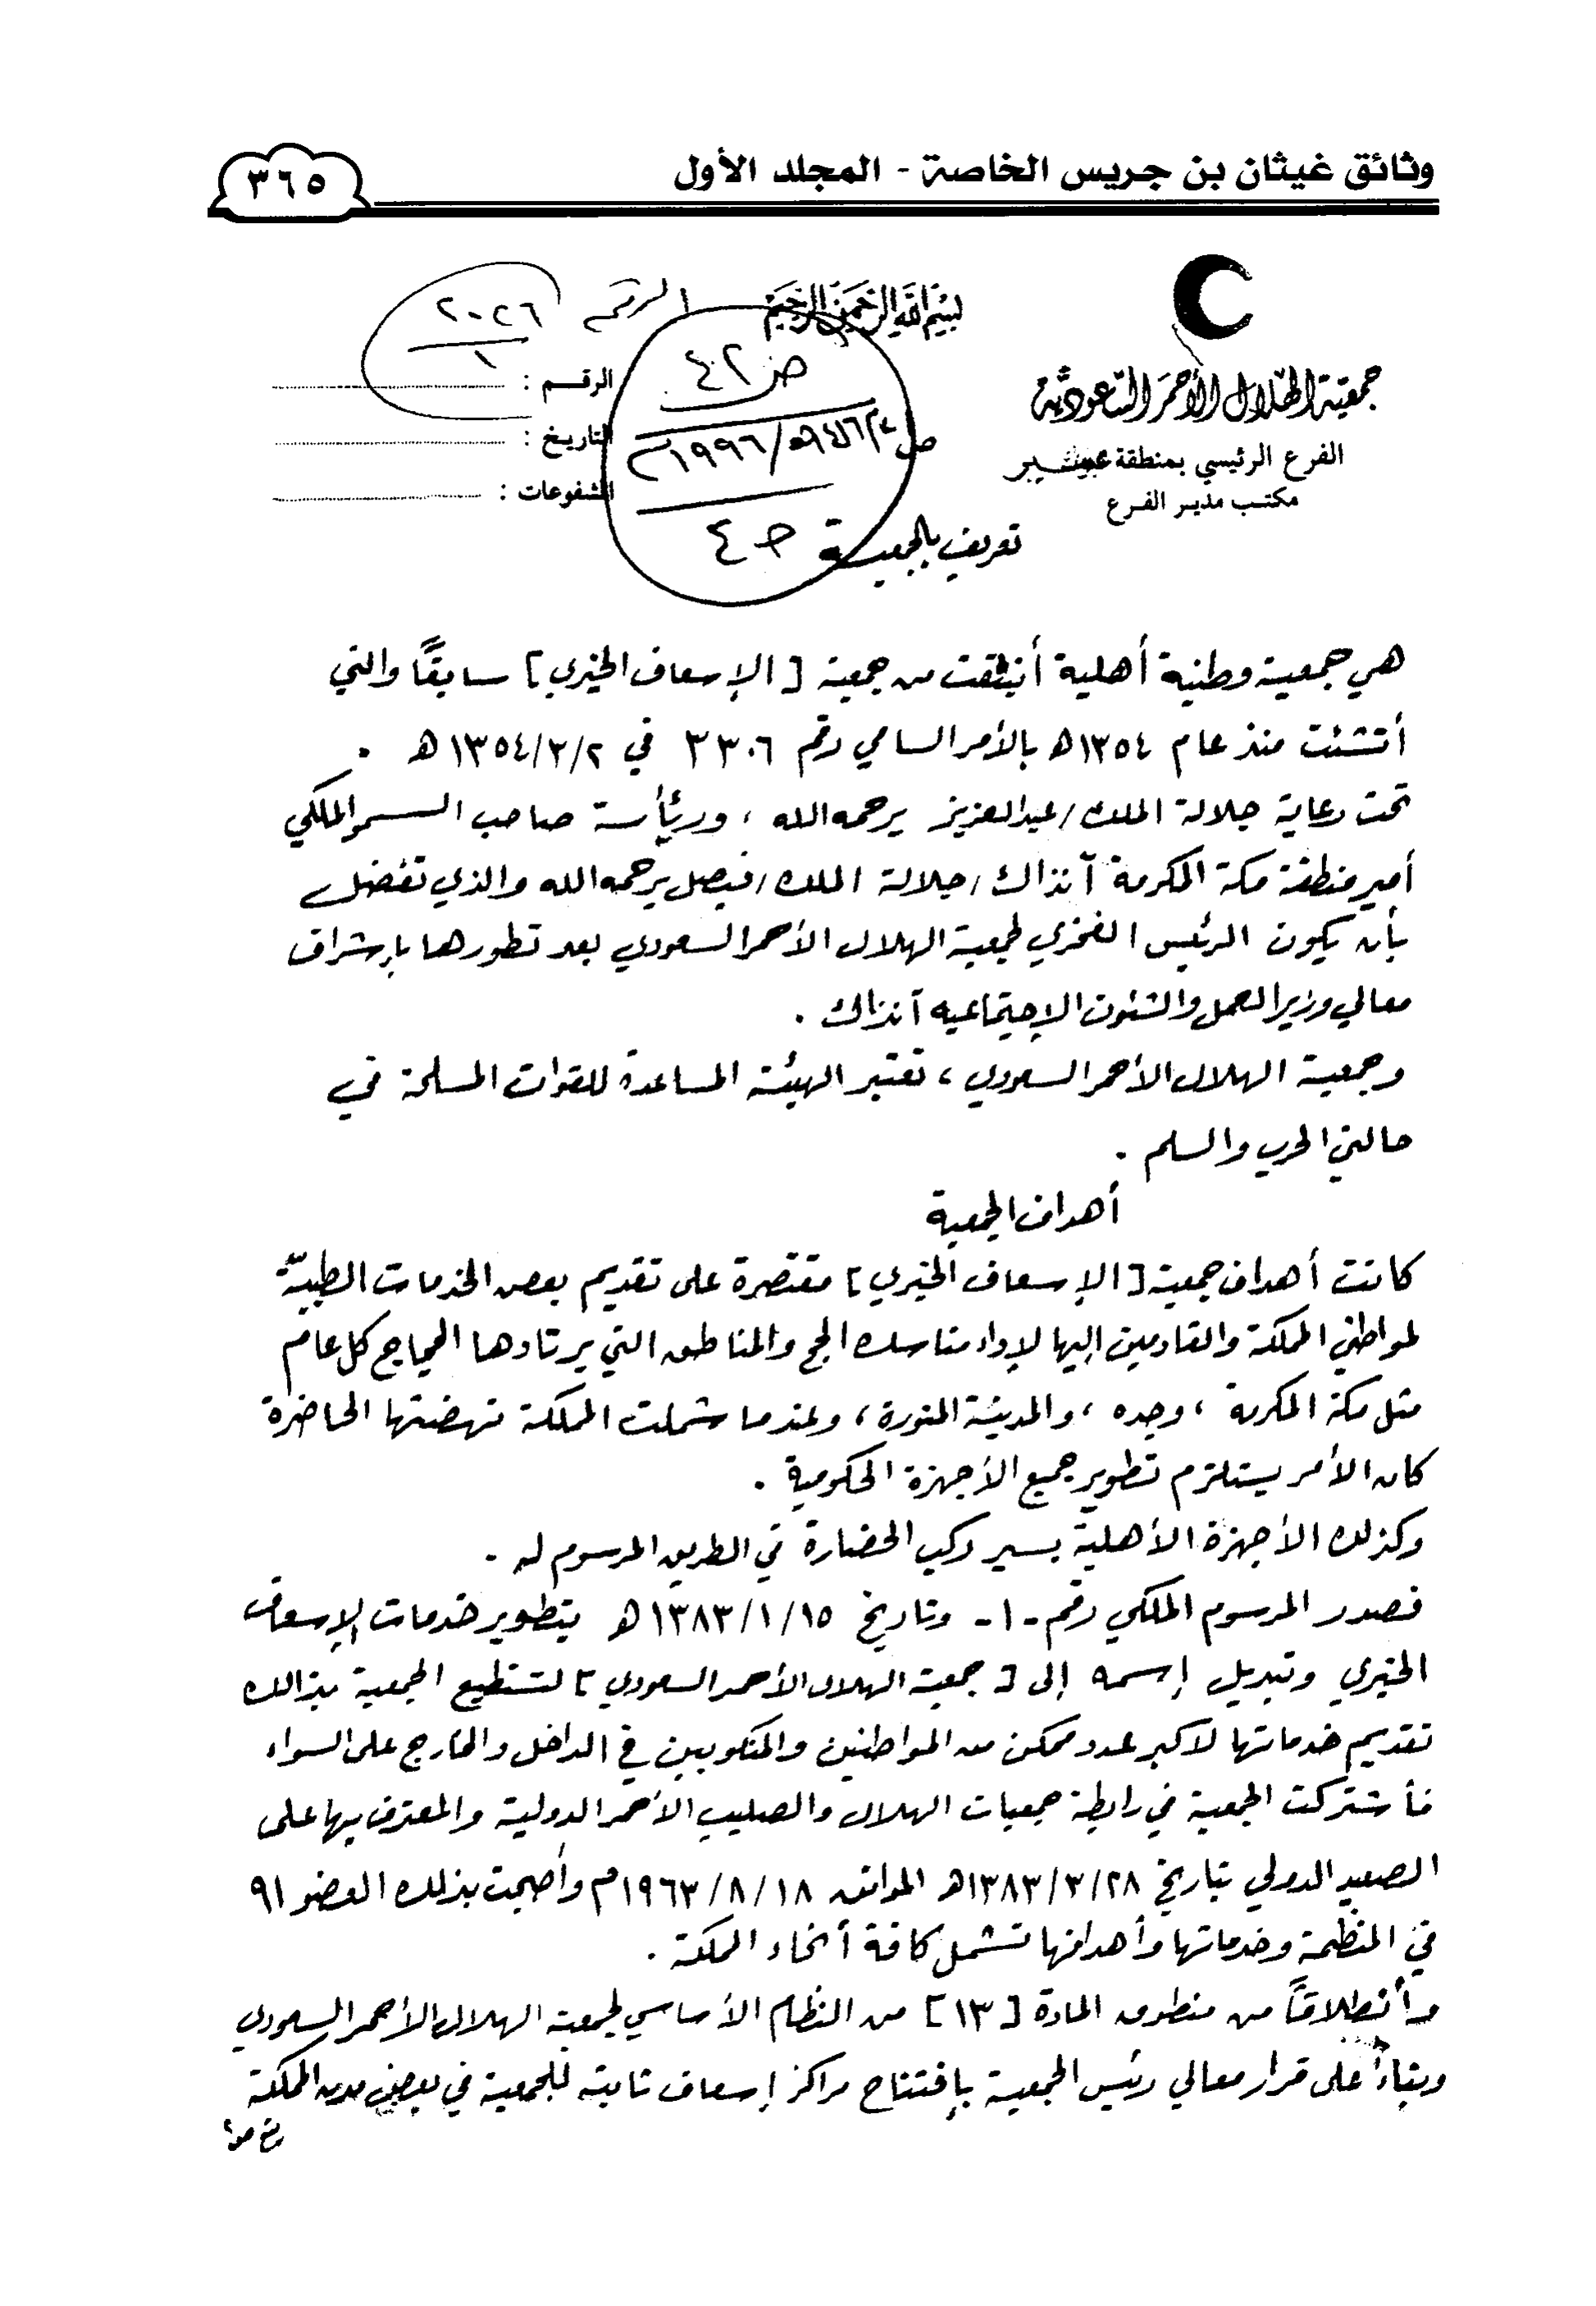 وثائق غيثان بن جريس الخاصة - المجلد الأول
٣٦٥
بسم الله الرحمن الرحيم
جمعية الهلال الأحمر السعودية
الفرع الرئيسي بمنطقة عسير
مكتب مدير الفرع
الرقم ٢٠٢٦
١
الرقم :
التاريخ :
المشفوعات :
ص ٤٢
١٩٩٦م
ص ٤
تعريف بالجمعية
هي جمعية وطنية أهلية أنبثقت من جمعية [ الإسعاف الخيري ] سابقاً والتي
أنشئت منذ عام ١٣٥٤ه بالأمر السامي رقم ٣٣٠٦ في ١٣٥٤/٣/٢ه .
تحت رعاية جلالة الملك / عبدالعزيز يرحمه الله ، ورئأسة صاحب السمو الملكي
أمير منطقة مكة المكرمة آنذاك / جلالة الملك / فيصل يرحمه الله والذي تفضل
بأن يكون الرئيس الفخري لجمعية الهلال الأحمر السعودي بعد تطورها بإشراف
معالي وزير العمل والشئون الإجتماعيه آنذاك .
وجمعية الهلال الأحمر السعودي ، تعتبر الهيئة المساعدة للقوات المسلحة في
حالتي الحرب والسلم .
أهداف الجمعية
كانت أهداف جمعية [ الإسعاف الخيري ] مقتصرة على تقديم بعض الخدمات الطبيّة
لمواطني المملكة والقادمين إليها لإداء مناسك الحج والمناطق التي يرتادها الحجاج كل عام
مثل مكة المكرمة ، وجده ، والمدينة المنورة ، وعندما شملت المملكة نهضتها الحاضرة
كان الأمر يستلزم تطوير جميع الأجهزة الحكومية .
وكذلك الأجهزة الأهلية يسير ركب الحضارة في الطريق المرسوم له .
فصدر المرسوم الملكي رقم - ١ - وتاريخ ١٣٨٣/١/١٥ه بتطوير خدمات الإسعاف
الخيري وتبديل إسمه إلى [ جمعية الهلال الأحمر السعودي ] لتستطيع الجمعية بذالك
تقديم خدماتها لاكبر عدد ممكن من المواطنين والمنكوبين في الداخل والخارج على السواء
فأشتركت الجمعية في رابطة جمعيات الهلال والصليب الأحمر الدولية والمعترف بها على
الصعيد الدولي بتاريخ ١٣٨٣/٣/٢٨ه الموافق ١٩٦٣/٨/١٨م وأصبحت بذلك العضو ٩١
في المنظمة وخدماتها وأهدافها تشمل كافة أنحاء المملكة .
وأنطلاقاً من منطوق المادة [ ١٣ ] من النظام الأساسي لجمعية الهلال الأحمر السعودي
وبناءاً على قرار معالي رئيس الجمعية بإفتتاح مراكز إسعاف ثابته للجمعية في بعض مدن المملكة